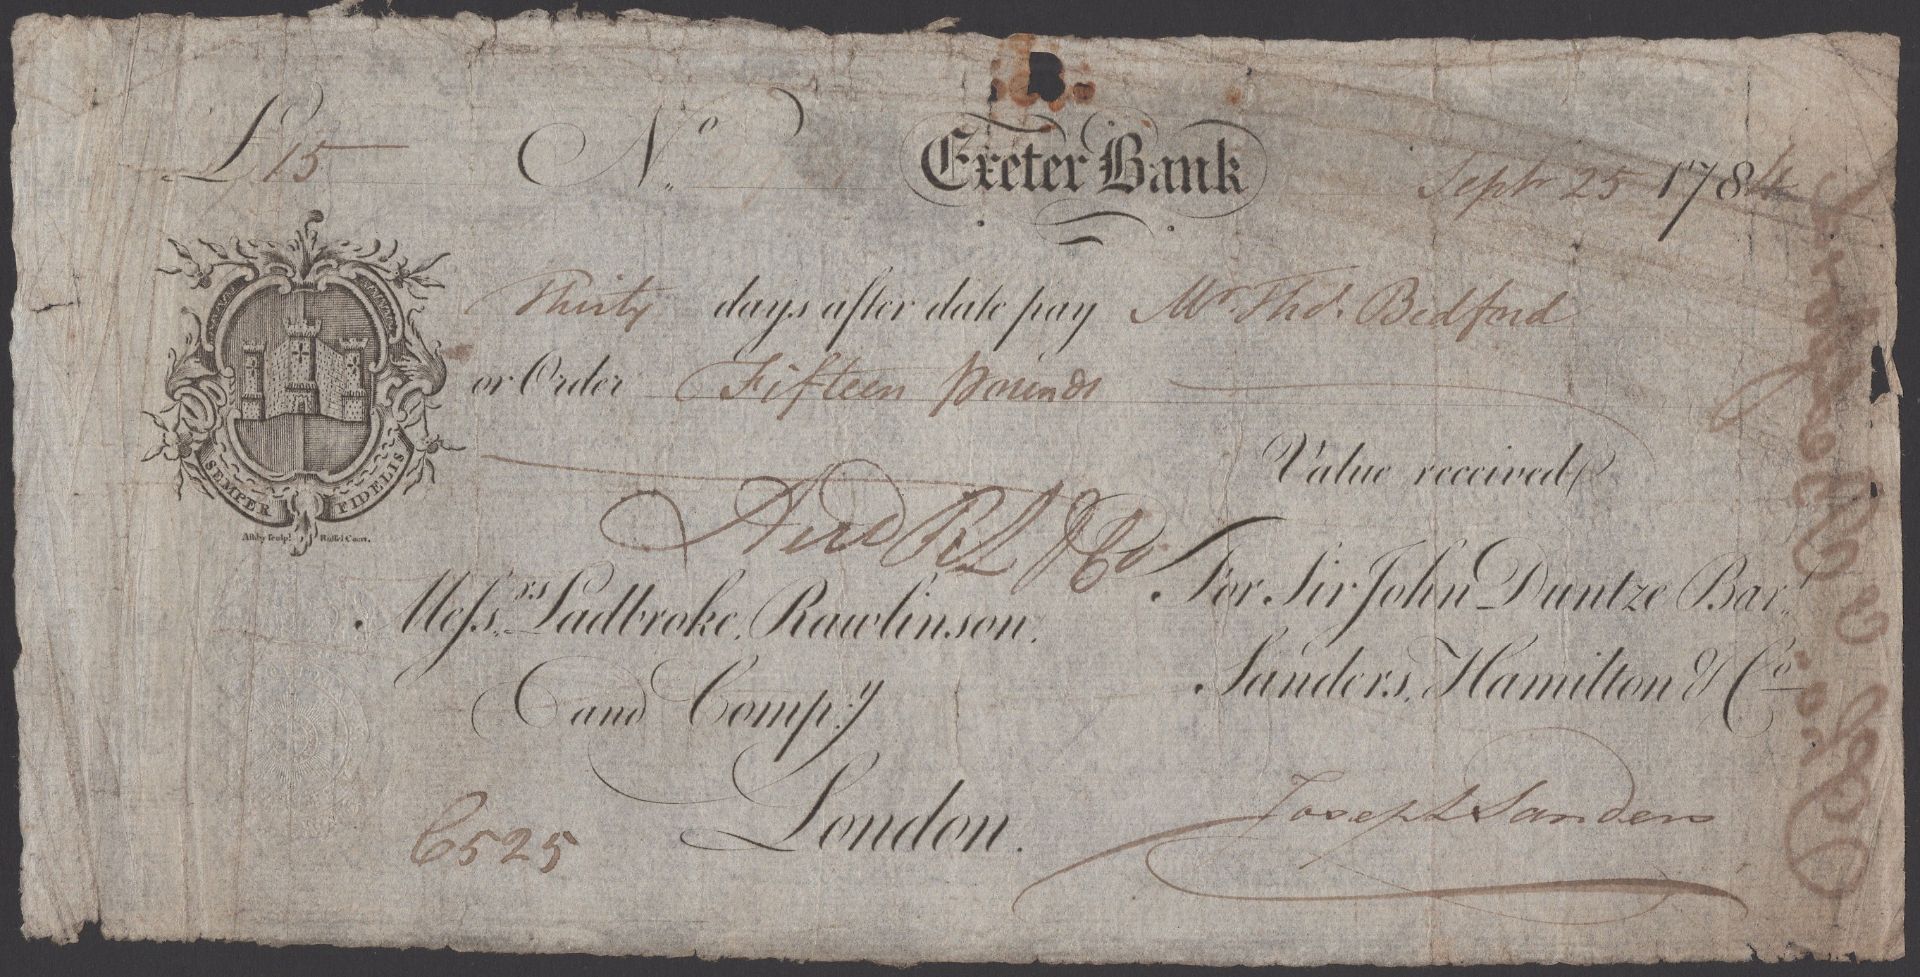 £15 No. Exeter Bank Sept 25 1784
Thirty days after date pay Mr. Thos. Bedford
or Order Fifteen Pounds
Value received
SEMPER FIDELIS
Ashby Sculpt. Russel Court.
R L & Co
Messrs. Ladbroke, Rawlinson,
and Compy.
London.
For Sir John Duntze Bart.
Sanders, Hamilton & Co.
Joseph Sanders
6525